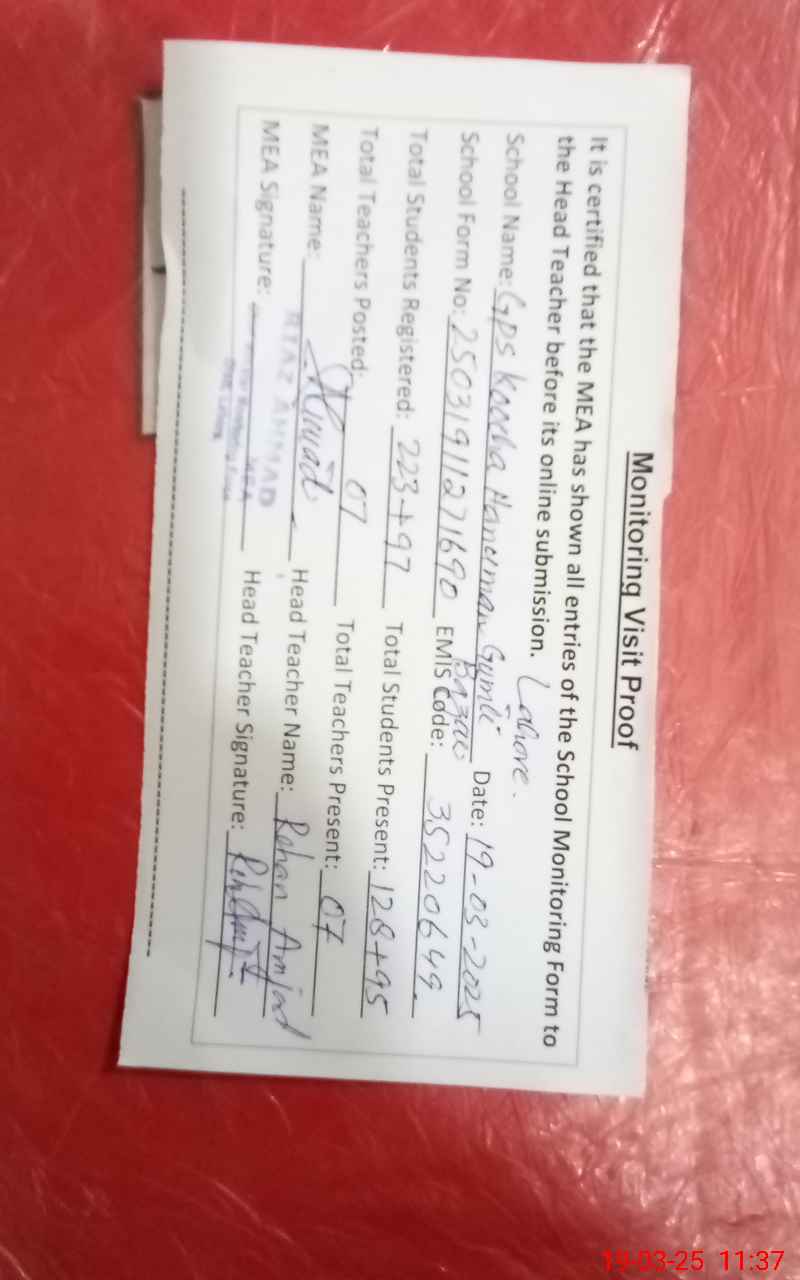 Monitoring Visit Proof
It is certified that the MEA has shown all entries of the School Monitoring Form to
the Head Teacher before its online submission. Lahore.
School Name: GPS Koocha Hanuman Gumti Bazar Date: 19-03-2025
School Form No: 25031911271690 EMIS Code: 35220649.
Total Students Registered: 223+97 Total Students Present: 128+95
Total Teachers Posted: 07 Total Teachers Present: 07
MEA Name: Head Teacher Name: Rehan Amjad
MEA Signature: Head Teacher Signature:
AHMAD
MEA
19-03-25 11:37